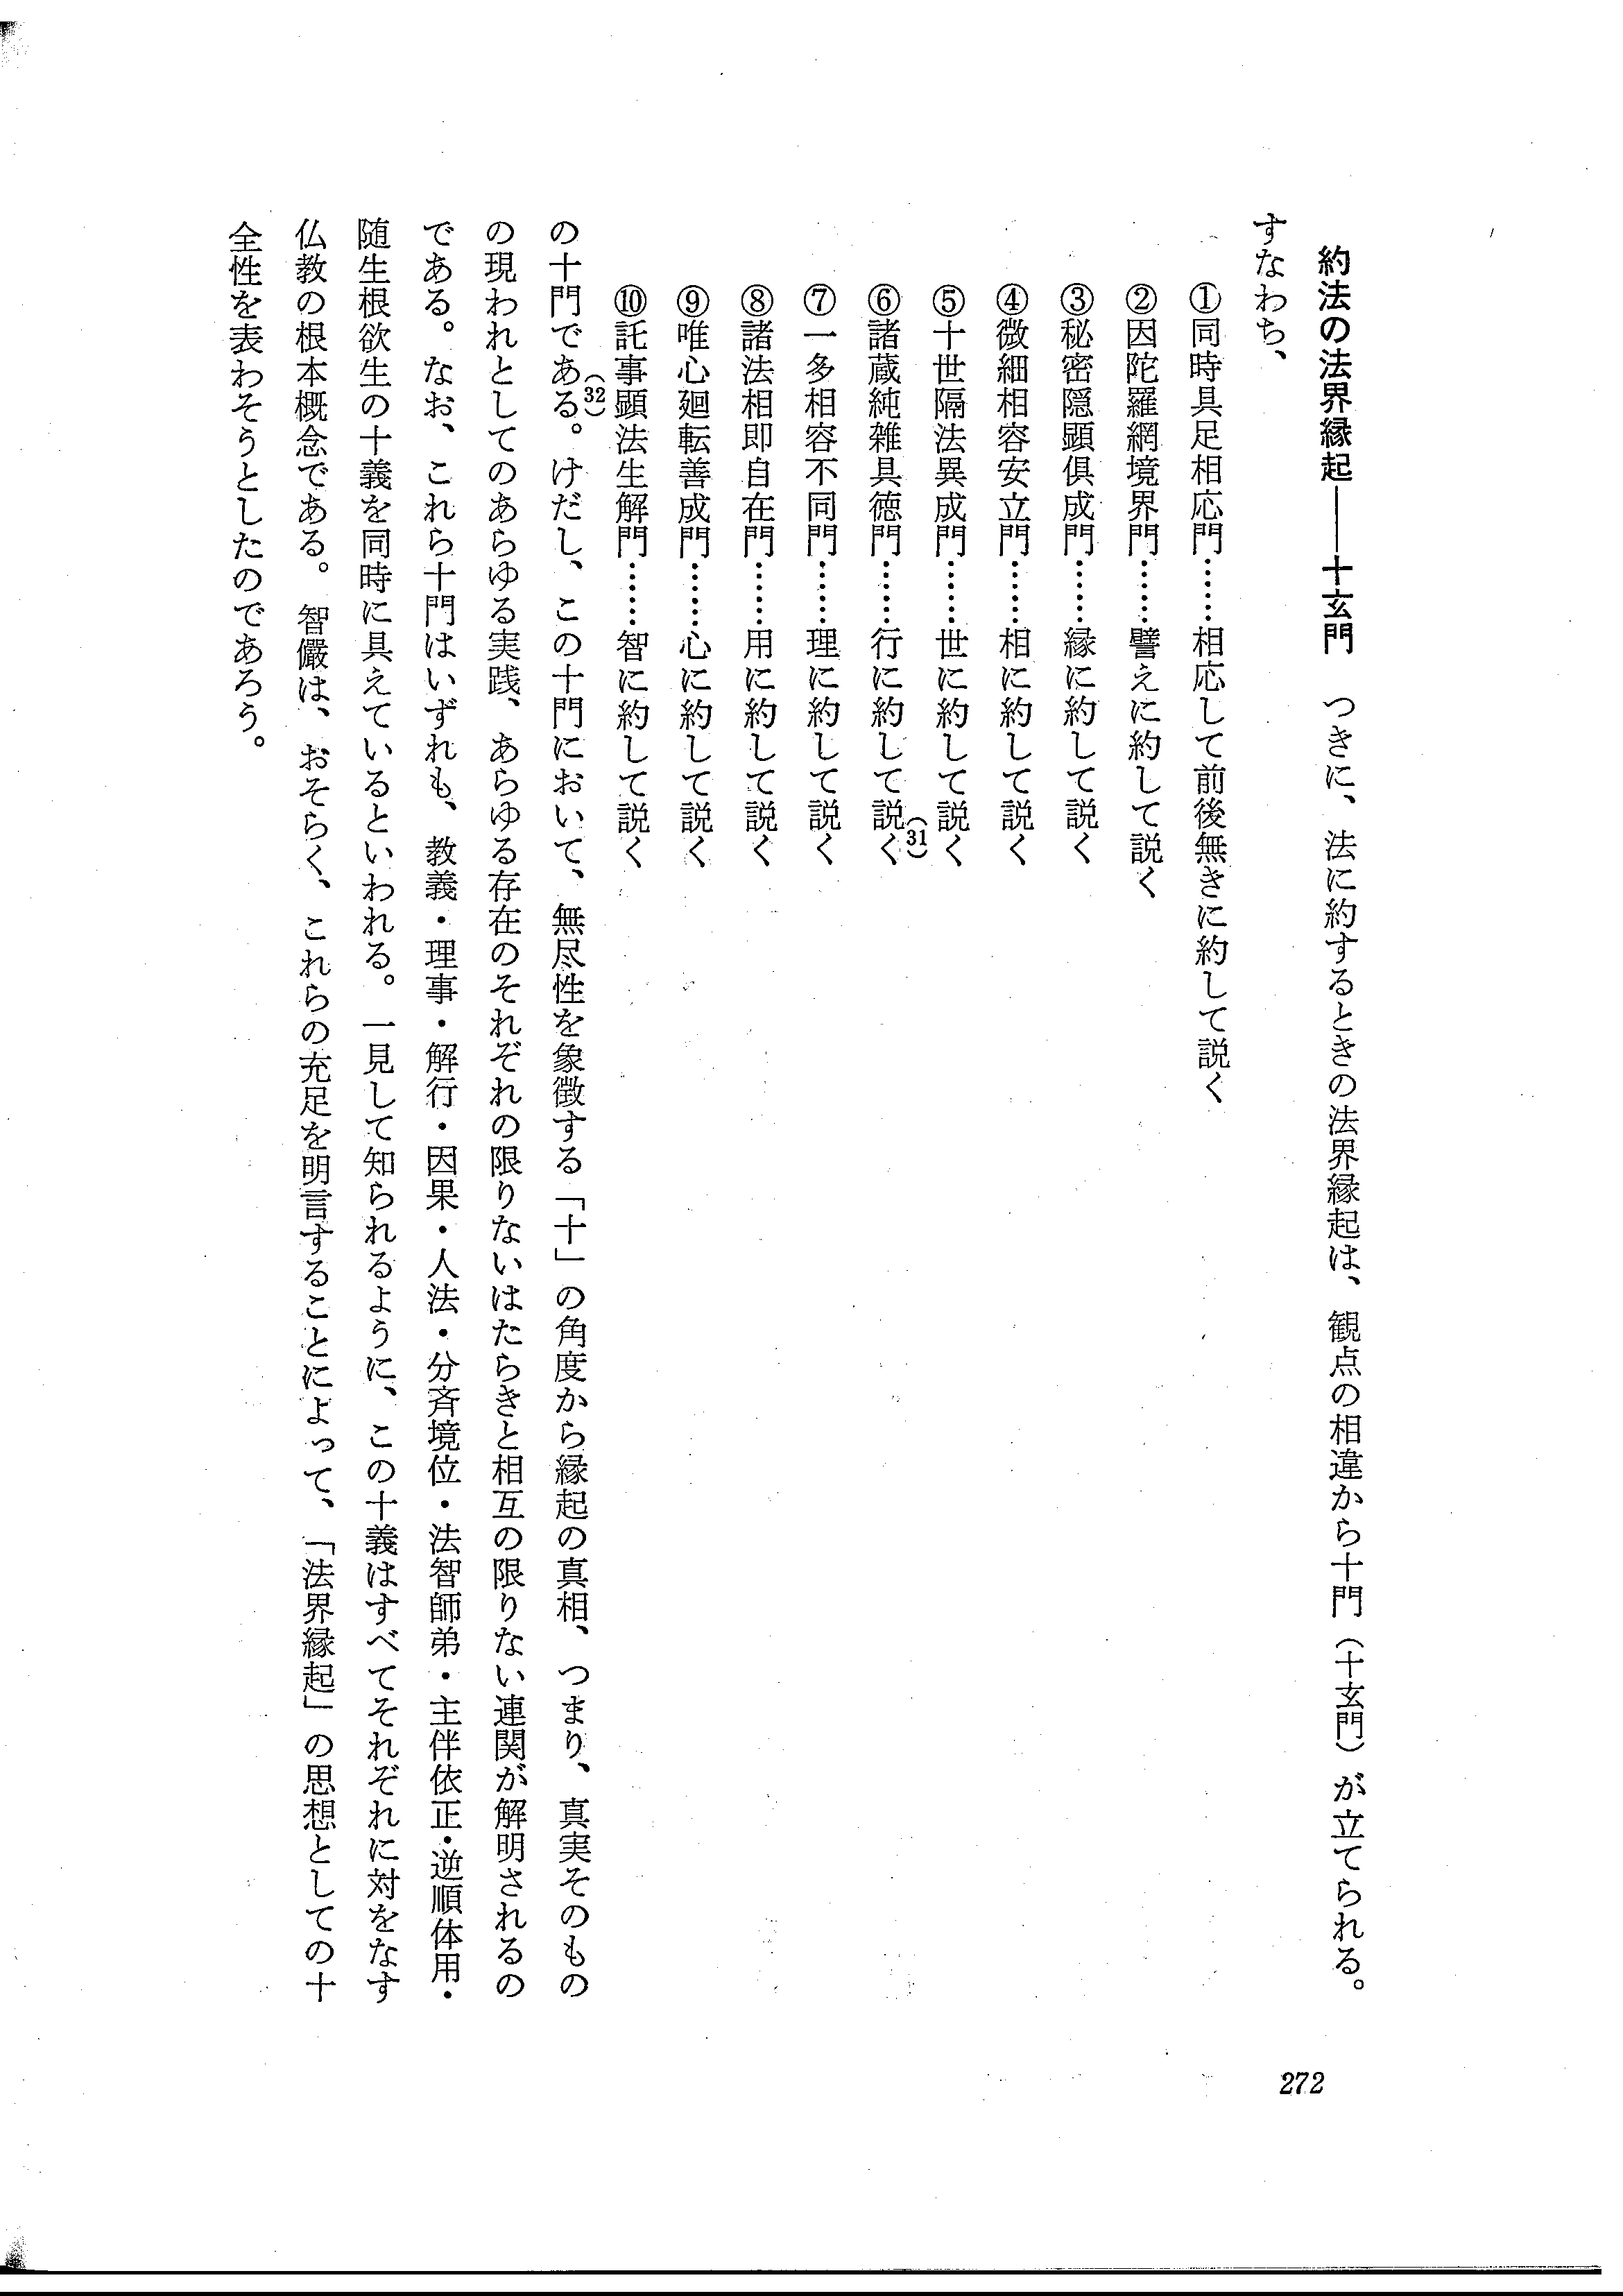 約法の法界縁起——十玄門　つきに、法に約するときの法界縁起は、観点の相違から十門（十玄門）が立てられる。
すなわち、
①同時具足相応門……相応して前後無きに約して説く
②因陀羅網境界門……譬えに約して説く
③秘密隠顕俱成門……縁に約して説く
④微細相容安立門……相に約して説く
⑤十世隔法異成門……世に約して説く
⑥諸蔵純雑具徳門……行に約して説く(31)
⑦一多相容不同門……理に約して説く
⑧諸法相即自在門……用に約して説く
⑨唯心廻転善成門……心に約して説く
⑩託事顕法生解門……智に約して説く
の十門である(32)。けだし、この十門において、無尽性を象徴する「十」の角度から縁起の真相、つまり、真実そのもの
の現われとしてのあらゆる実践、あらゆる存在のそれぞれの限りないはたらきと相互の限りない連関が解明されるの
である。なお、これら十門はいずれも、教義・理事・解行・因果・人法・分斉境位・法智師弟・主伴依正・逆順体用・
随生根欲生の十義を同時に具えているといわれる。一見して知られるように、この十義はすべてそれぞれに対をなす
仏教の根本概念である。智儼は、おそらく、これらの充足を明言することによって、「法界縁起」の思想としての十
全性を表わそうとしたのであろう。
272